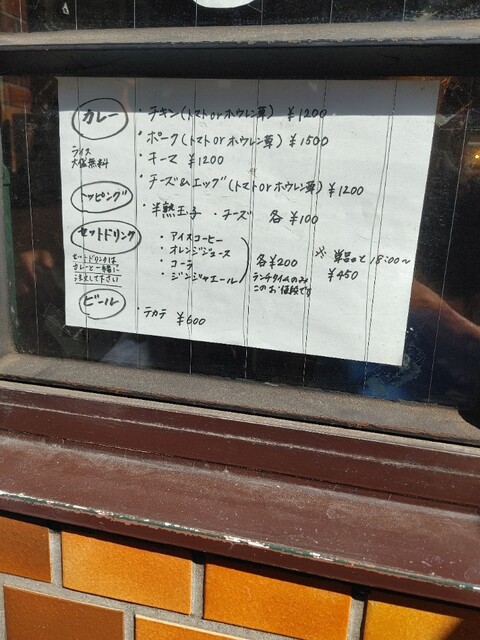 カレー
・チキン(トマトorホウレン草) ¥1200
・ポーク(トマトorホウレン草) ¥1500
ライス
大盛無料
・キーマ ¥1200
・チーズ&エッグ(トマトorホウレン草) ¥1200
トッピング
・半熟玉子 ・チーズ 各¥100
セットドリンク
・アイスコーヒー
・オレンジジュース
・コーラ
・ジンジャエール
各¥200
ランチタイムのみ
このお値段です
※単品と18:00〜
¥450
セットドリンクは
カレーと一緒に
注文して下さい
ビール
・テカテ ¥600